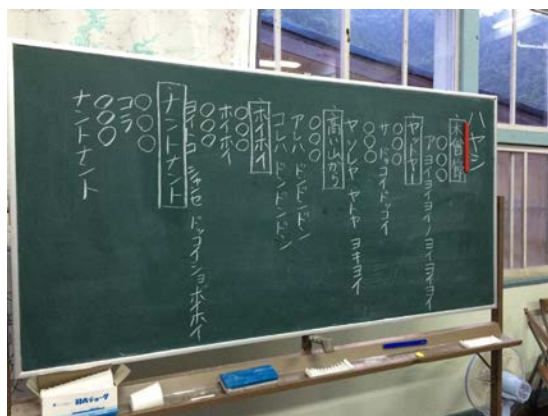 ハヤシ
木曽節
○○○
アヨイヨイヨイノ ヨイヨイヨイ
ヤットヤー
○○○
サ ドッコイドッコイ
○○○
ヤンソレヤ ヤトヤ ヨキヨイ
高い山から
○○○
アレハ ドンドンドン
コレハ ドンドンドン
ホイホイ
○○○
ホイホイ
○○○
ヨイショコ シャンセ ドッコイショ ホイホイ
ナントナント
○○○
コラ
○○○
ナントナント